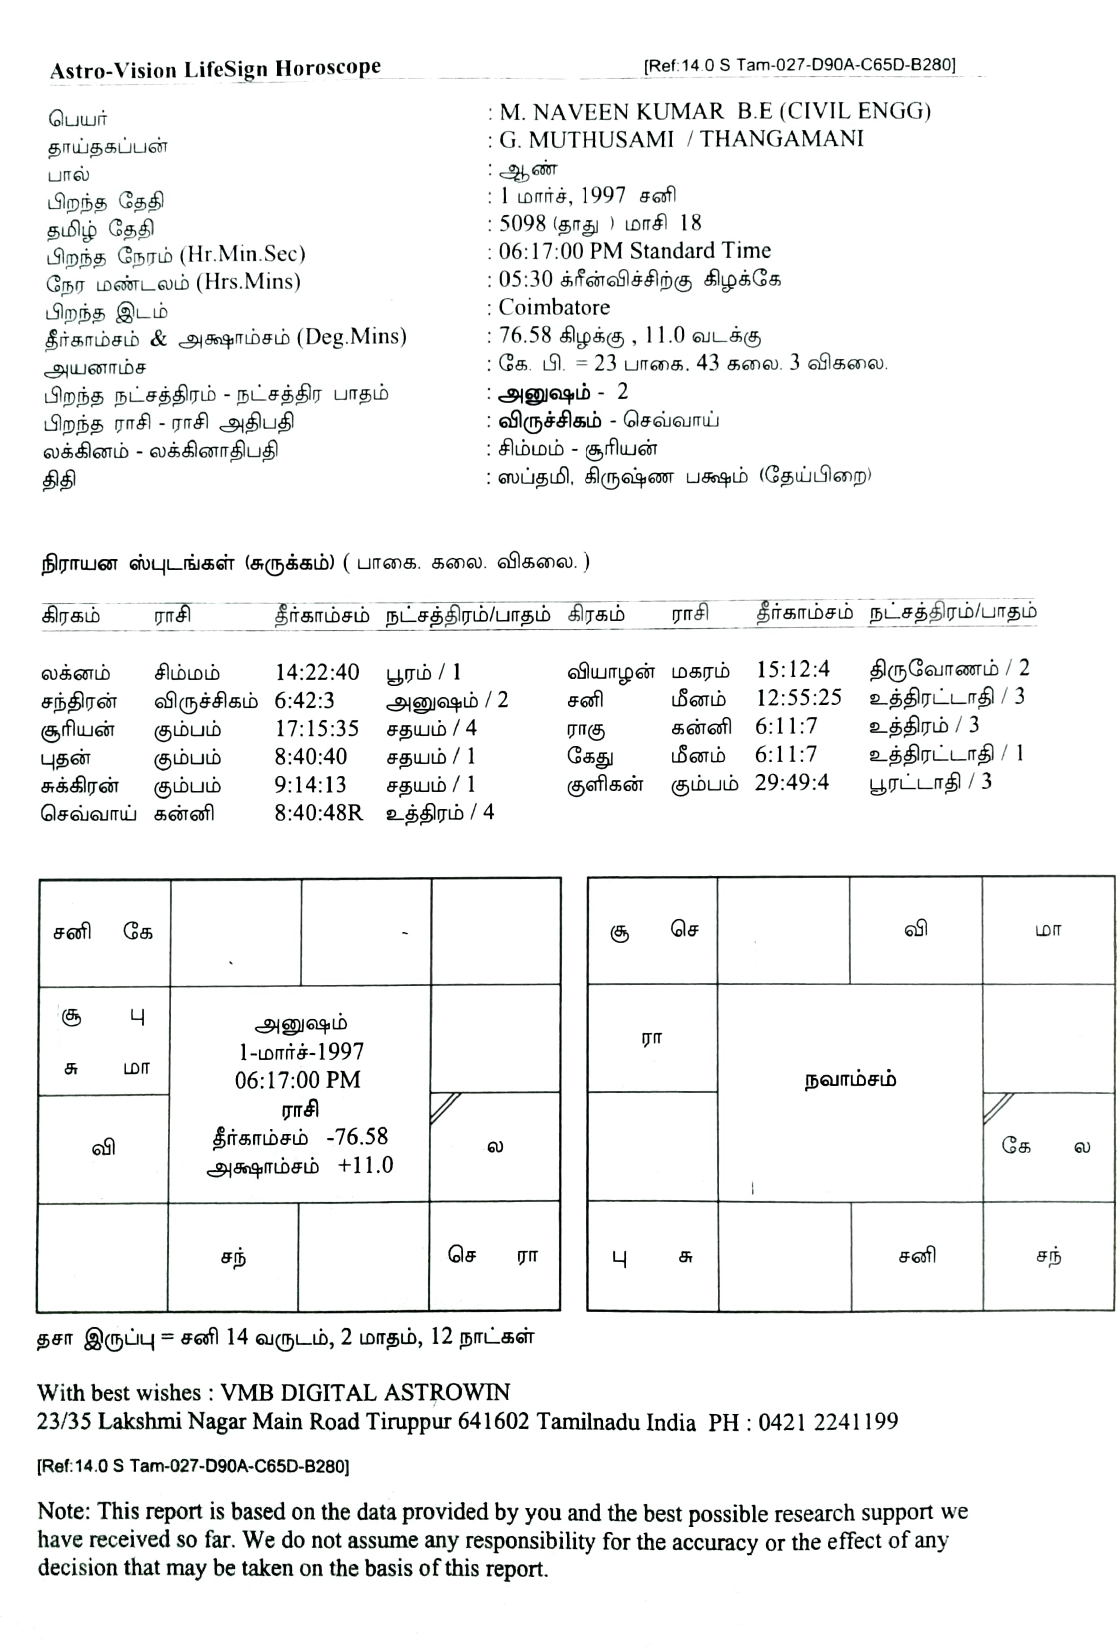 Astro-Vision LifeSign Horoscope [Ref:14.0 S Tam-027-D90A-C65D-B280]
பெயர் : M. NAVEEN KUMAR B.E (CIVIL ENGG)
தாய்தகப்பன் : G. MUTHUSAMI / THANGAMANI
பால் : ஆண்
பிறந்த தேதி : 1 மார்ச், 1997 சனி
தமிழ் தேதி : 5098 (தாது ) மாசி 18
பிறந்த நேரம் (Hr.Min.Sec) : 06:17:00 PM Standard Time
நேர மண்டலம் (Hrs.Mins) : 05:30 க்ரீன்விச்சிற்கு கிழக்கே
பிறந்த இடம் : Coimbatore
தீர்காம்சம் & அக்ஷாம்சம் (Deg.Mins) : 76.58 கிழக்கு , 11.0 வடக்கு
அயனாம்ச : கே. பி. = 23 பாகை. 43 கலை. 3 விகலை.
பிறந்த நட்சத்திரம் - நட்சத்திர பாதம் : அனுஷம் - 2
பிறந்த ராசி - ராசி அதிபதி : விருச்சிகம் - செவ்வாய்
லக்கினம் - லக்கினாதிபதி : சிம்மம் - சூரியன்
திதி : ஸப்தமி, கிருஷ்ண பக்ஷம் (தேய்பிறை)
நிராயன ஸ்புடங்கள் (சுருக்கம்) ( பாகை. கலை. விகலை. )
கிரகம் ராசி தீர்காம்சம் நட்சத்திரம்/பாதம் கிரகம் ராசி தீர்காம்சம் நட்சத்திரம்/பாதம்
லக்னம் சிம்மம் 14:22:40 பூரம் / 1 வியாழன் மகரம் 15:12:4 திருவோணம் / 2
சந்திரன் விருச்சிகம் 6:42:3 அனுஷம் / 2 சனி மீனம் 12:55:25 உத்திரட்டாதி / 3
சூரியன் கும்பம் 17:15:35 சதயம் / 4 ராகு கன்னி 6:11:7 உத்திரம் / 3
புதன் கும்பம் 8:40:40 சதயம் / 1 கேது மீனம் 6:11:7 உத்திரட்டாதி / 1
சுக்கிரன் கும்பம் 9:14:13 சதயம் / 1 குளிகன் கும்பம் 29:49:4 பூரட்டாதி / 3
செவ்வாய் கன்னி 8:40:48R உத்திரம் / 4
சனி கே
சூ பு
சு மா
அனுஷம்
1-மார்ச்-1997
06:17:00 PM
ராசி
தீர்காம்சம் -76.58
அக்ஷாம்சம் +11.0
வி
ல
சந்
செ ரா
சூ செ
வி
மா
ரா
நவாம்சம்
கே ல
பு சு
சனி
சந்
தசா இருப்பு = சனி 14 வருடம், 2 மாதம், 12 நாட்கள்
With best wishes : VMB DIGITAL ASTROWIN
23/35 Lakshmi Nagar Main Road Tiruppur 641602 Tamilnadu India PH : 0421 2241199
[Ref:14.0 S Tam-027-D90A-C65D-B280]
Note: This report is based on the data provided by you and the best possible research support we
have received so far. We do not assume any responsibility for the accuracy or the effect of any
decision that may be taken on the basis of this report.